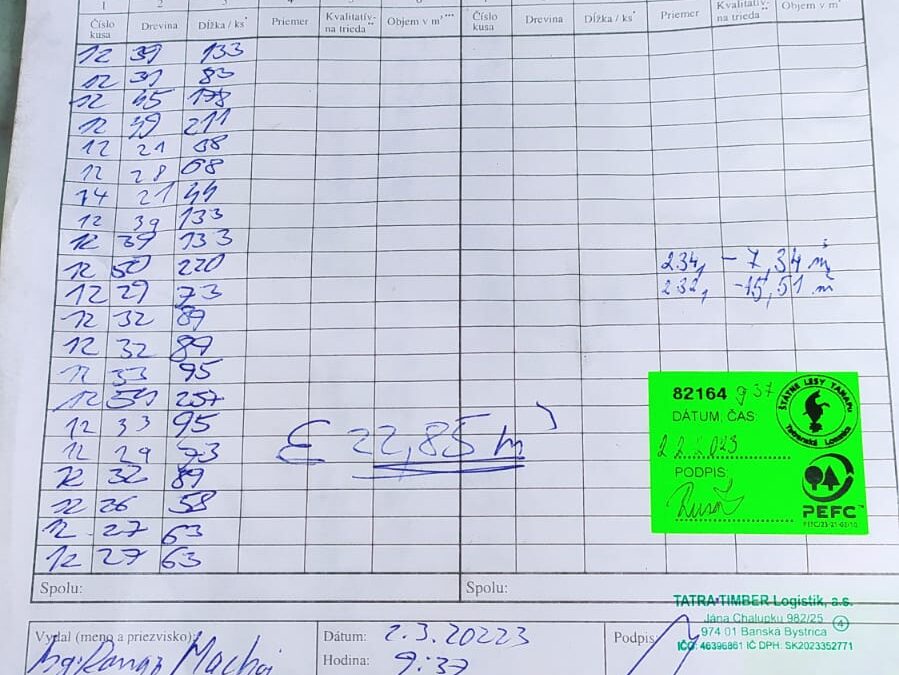 1 2 3 4
Číslo kusa Drevina Dĺžka / ks* Priemer Kvalitatív-na trieda** Objem v m³*** Číslo kusa Drevina Dĺžka / ks* Priemer Kvalitatív-na trieda** Objem v m³
12 39 133
12 31 83
12 45 178
12 49 211
12 21 38
12 28 68
14 21 44
12 39 133
12 39 133
12 50 220
234, - 7,34 m³
12 29 73
232, - 15,51 m³
12 32 89
12 32 89
12 33 95
12 54 257
12 33 95
12 29 73
12 32 89
12 26 58
12 27 63
12 27 63
Σ 22,85 m³
82164 937
DÁTUM, ČAS:
PODPIS:
ŠTÁTNE LESY TANAPu
Tatranská Lomnica
PEFC™
Spolu: Spolu:
TATRA TIMBER Logistik, a.s.
Jána Chalupku 982/25
974 01 Banská Bystrica 4
IČO: 46396861 IČ DPH: SK2023352771
Vydal (meno a priezvisko): Dátum: 2.3.20223 Podpis:
Ing. Hodina: 9:37